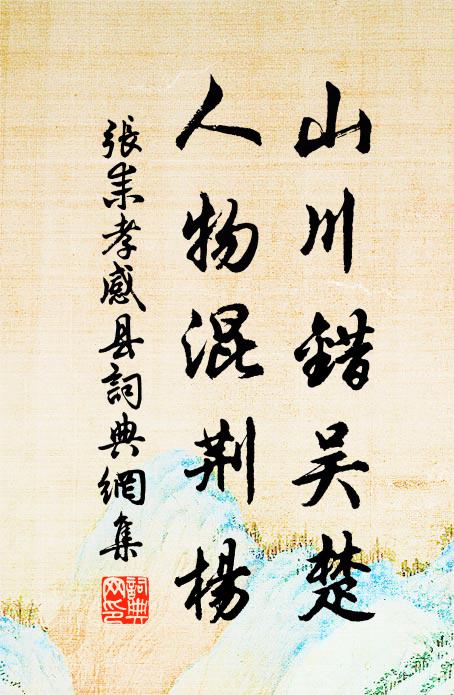 山川錯吴楚
人物混荆楊
張耒孝感县詞典網集
詞典网印